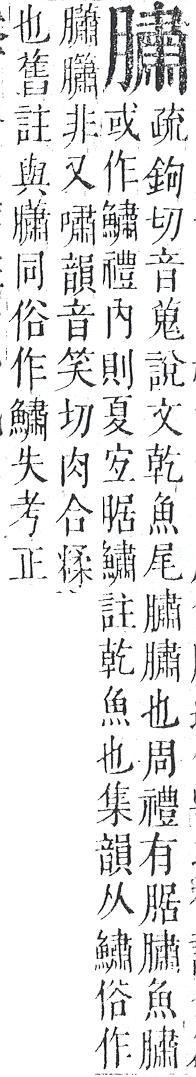 膴疏鉤切音蒐說文乾魚尾膴膴也周禮有腒膴魚膴
或作鱐禮內則夏宜腒鱐註乾魚也集韻从鱐俗作
膴𦢩非又嘯韻音笑切肉合糅
也舊註與膴同俗作鱐失考正